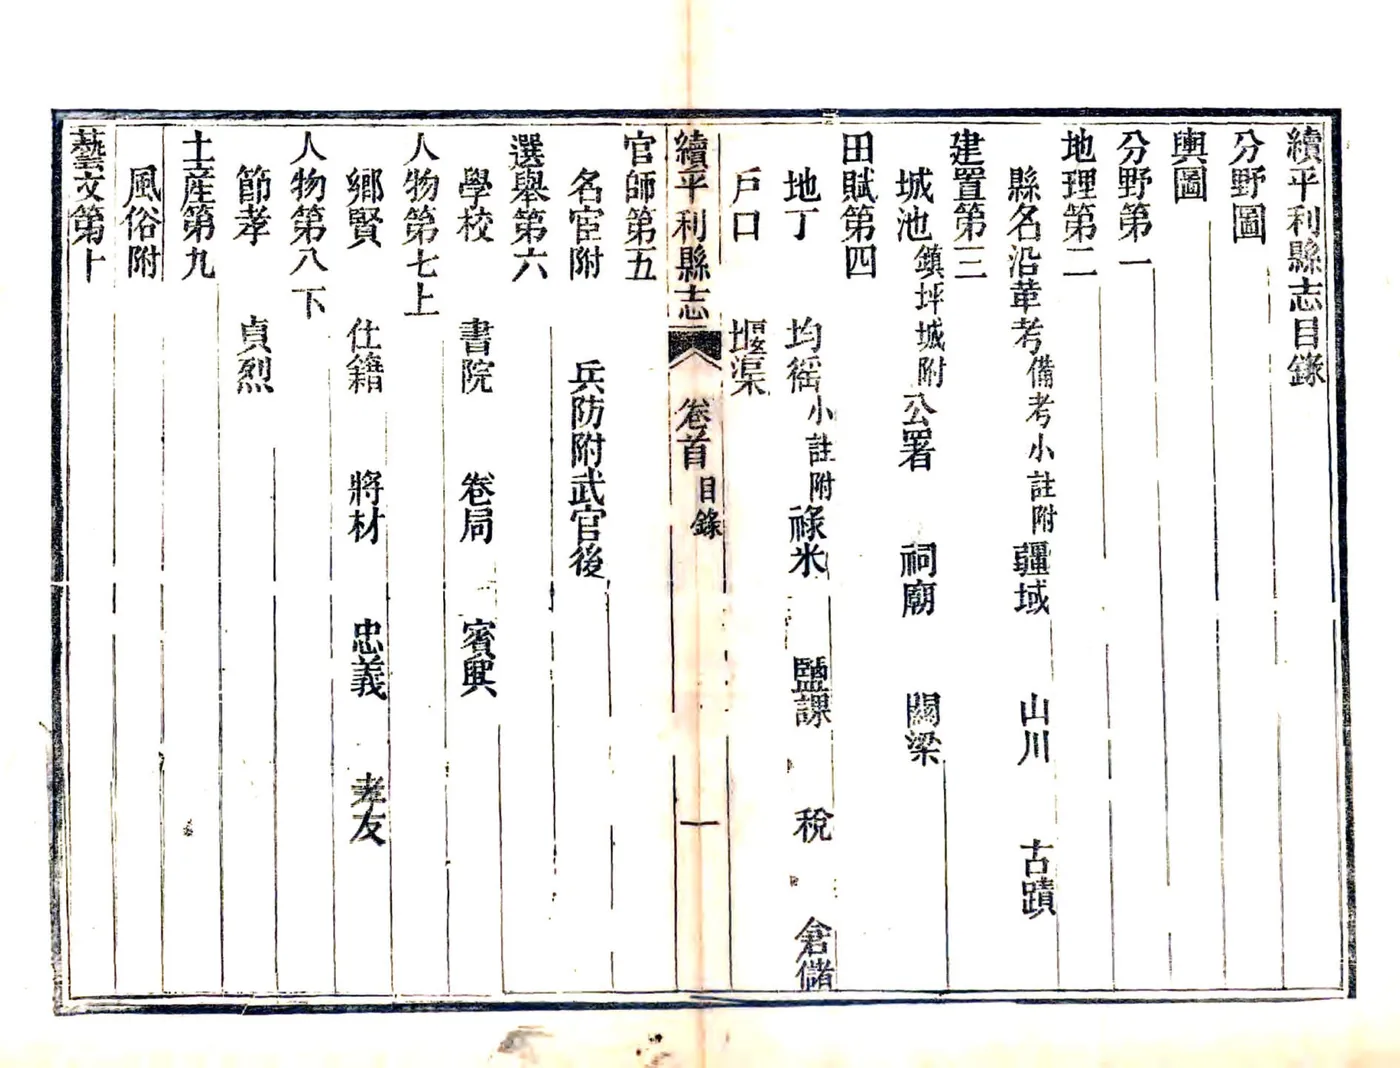 續平利縣志目錄
分野圖
輿圖
分野第一
地理第二
縣名沿革考備考小註附疆域 山川 古蹟
建置第三
城池鎮坪城附公署 祠廟 關梁
田賦第四
地丁 均徭小註附祿米 鹽課 稅 倉儲
戶口 堰渠
續平利縣志 卷首 目錄 一
官師第五
名宦附 兵防附武官後
選舉第六
學校 書院 卷局 賓興
人物第七上
鄉賢 仕籍 將材 忠義 孝友
人物第八下
節孝 貞烈
土產第九
風俗附
藝文第十